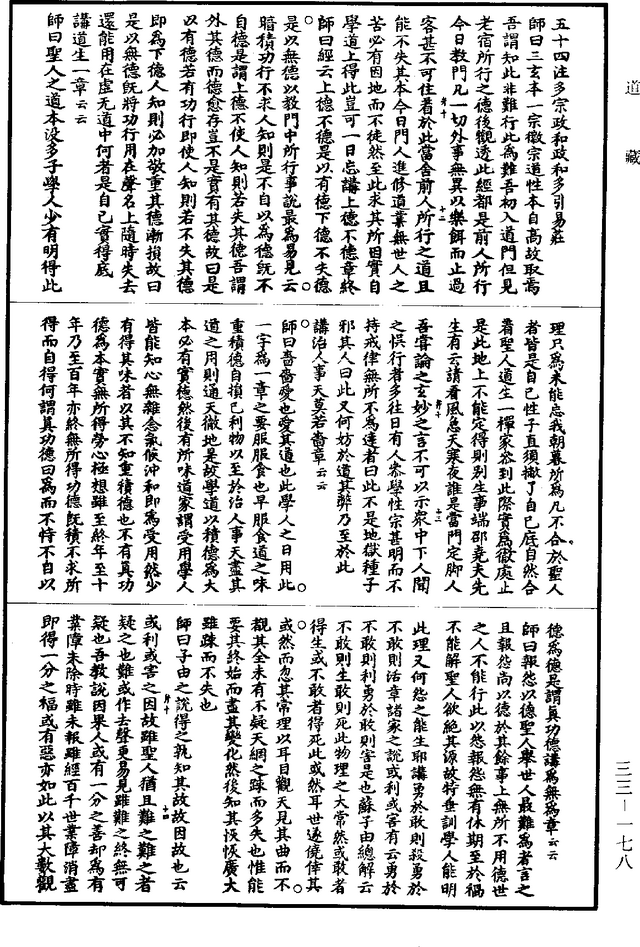 道藏
五十四注多宗政和政和多引易莊
師曰三玄本一宗徽宗道性本自高故取焉
吾謂知此非難行此為難吾初入道門但見
老宿所行之德後觀透此經都是前人所行
今日教門凡一切外事無異以樂餌而止過
客甚不可住着於此當舍前人所行之道且
能不失其本今日門人進修道業無世人之
苦必有因地而不徒然至此求其所因實自
學道上得此豈可一日忘講上德不德章終
師曰經云上德不德是以有德下德不失德
是以無德以教門中所行事說最為易見云
暗積功行不求人知則是不自以為德既不
自德是謂上德不使人知則若失其德吾謂
外其德而德愈存豈不是實有其德故曰是
以有德若有功行即使人知則若不失其德
即為下德人知則必加敬重其德漸損故曰
是以無德既將功行用在聲名上隨時失去
還能用在虛无道中何者是自己實得底
講道生一章云云
師曰聖人之道本没多子學人少有明得此
理只為未能忘我朝暮所為凡不合於聖人
者皆是自己性子直須撇了自己底自然合
着聖人道生一禪家參到此際實為徹處止
是此地上不能定得則別生事端邵堯夫先
生有云請看風急天寒夜誰是當門定脚人
吾嘗論之玄妙之言不可以示衆中下人聞
之悞行者多往日有人參學性宗甚明而不
持戒律無所不為達者曰此不是地獄種子
邪其人曰此又何妨於道其弊乃至於此
講治人事天莫若嗇章云云
師曰嗇嗇愛也愛其道也此學人之日用此
一字為一章之要服服食也早服食道之味
重積德自損己利物以至於治人事天盡其
道之用則通天徹地是故學道以積德為大
本必有實德然後有所味道家謂受用學人
皆能知心無雜念氣候沖和即為受用然少
有得其味者以其不知重積德也不有真功
德為本實無所得勞心極想雖至終年至十
年乃至百年亦終無所得功德既積不求所
得而自得何謂真功德曰為而不恃不自以
德為德是謂真功德講為無為章云云
師曰報怨以德聖人舉世人最難為者言之
且報怨尚以德於其餘事上無所不用德世
之人不能行此以怨報怨無有休期至於禍
不能解聖人欲絕其源故特垂訓學人能明
此理又何怨之能生耶講勇於敢則殺勇於
不敢則活章諸家之說或利或害有云勇於
不敢則利勇於敢則害是也蘇子由總解云
不敢則生敢則死此物理之大常然或敢者
得生或不敢者得死此或然耳世遂僥倖其
或然而忽其常理以耳目觀天見其曲而不
覩其全未有不疑天網之踈而多失也惟能
要其終始而盡其變化然後知其恢恢廣大
雖踈而不失也
師曰子由之說得之孰知其故故因故也云
或利或害之因故雖聖人猶且難之難之者
疑之也難或作去聲更易見雖難之終無可
疑也吾教說因果人或有一分之善却為有
業障未除時雖未報雖經百千世業障消盡
即得一分之福或有惡亦如此以其大數觀
三三—一七八